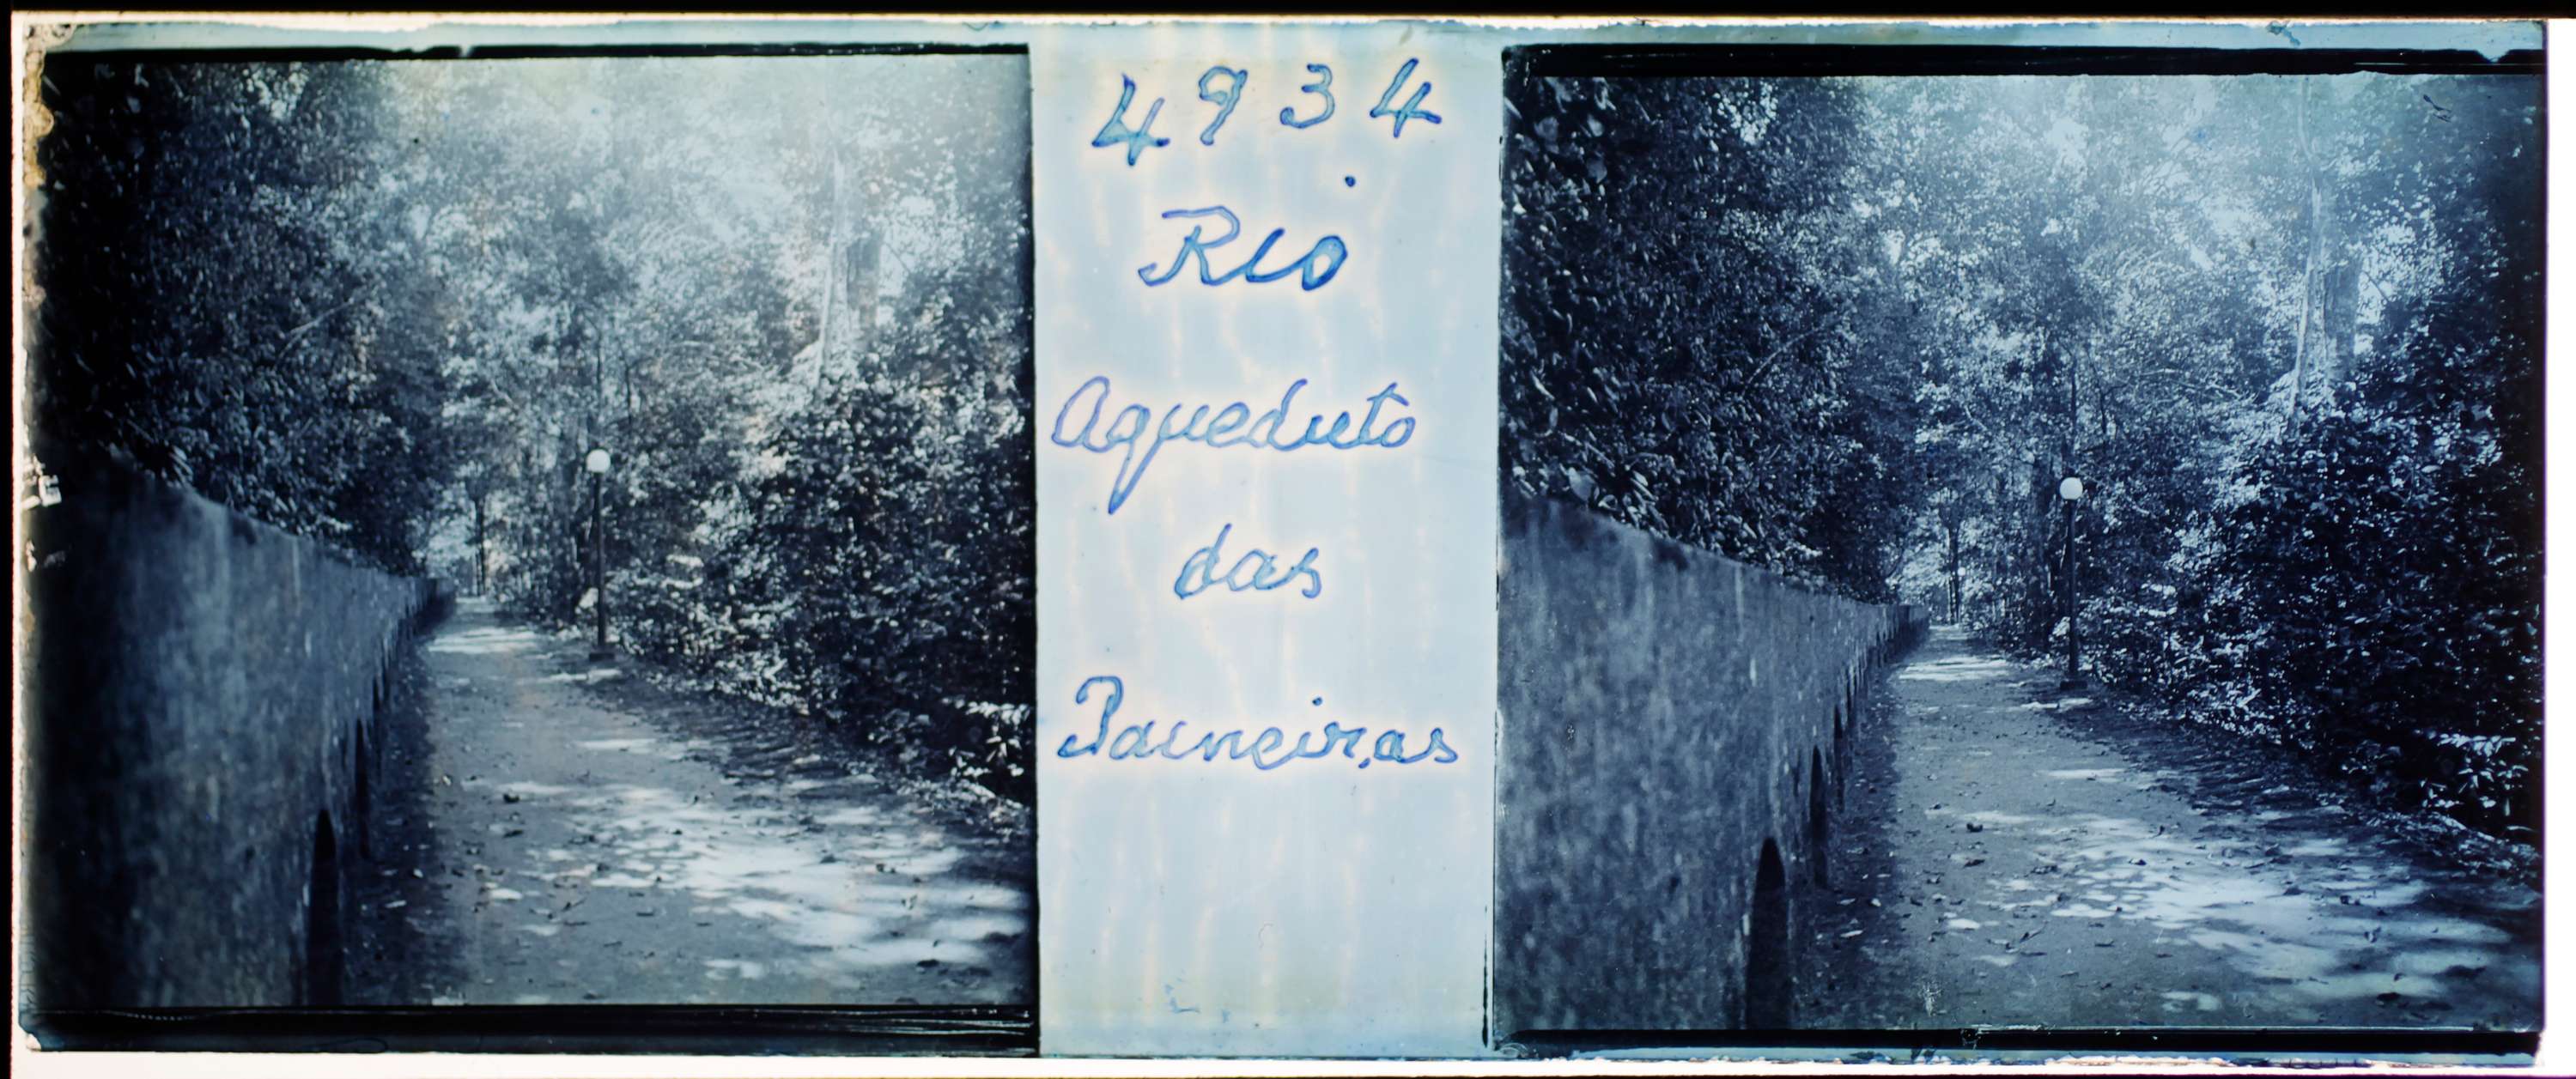 4934
Rio
Aqueduto
das
Paineiras